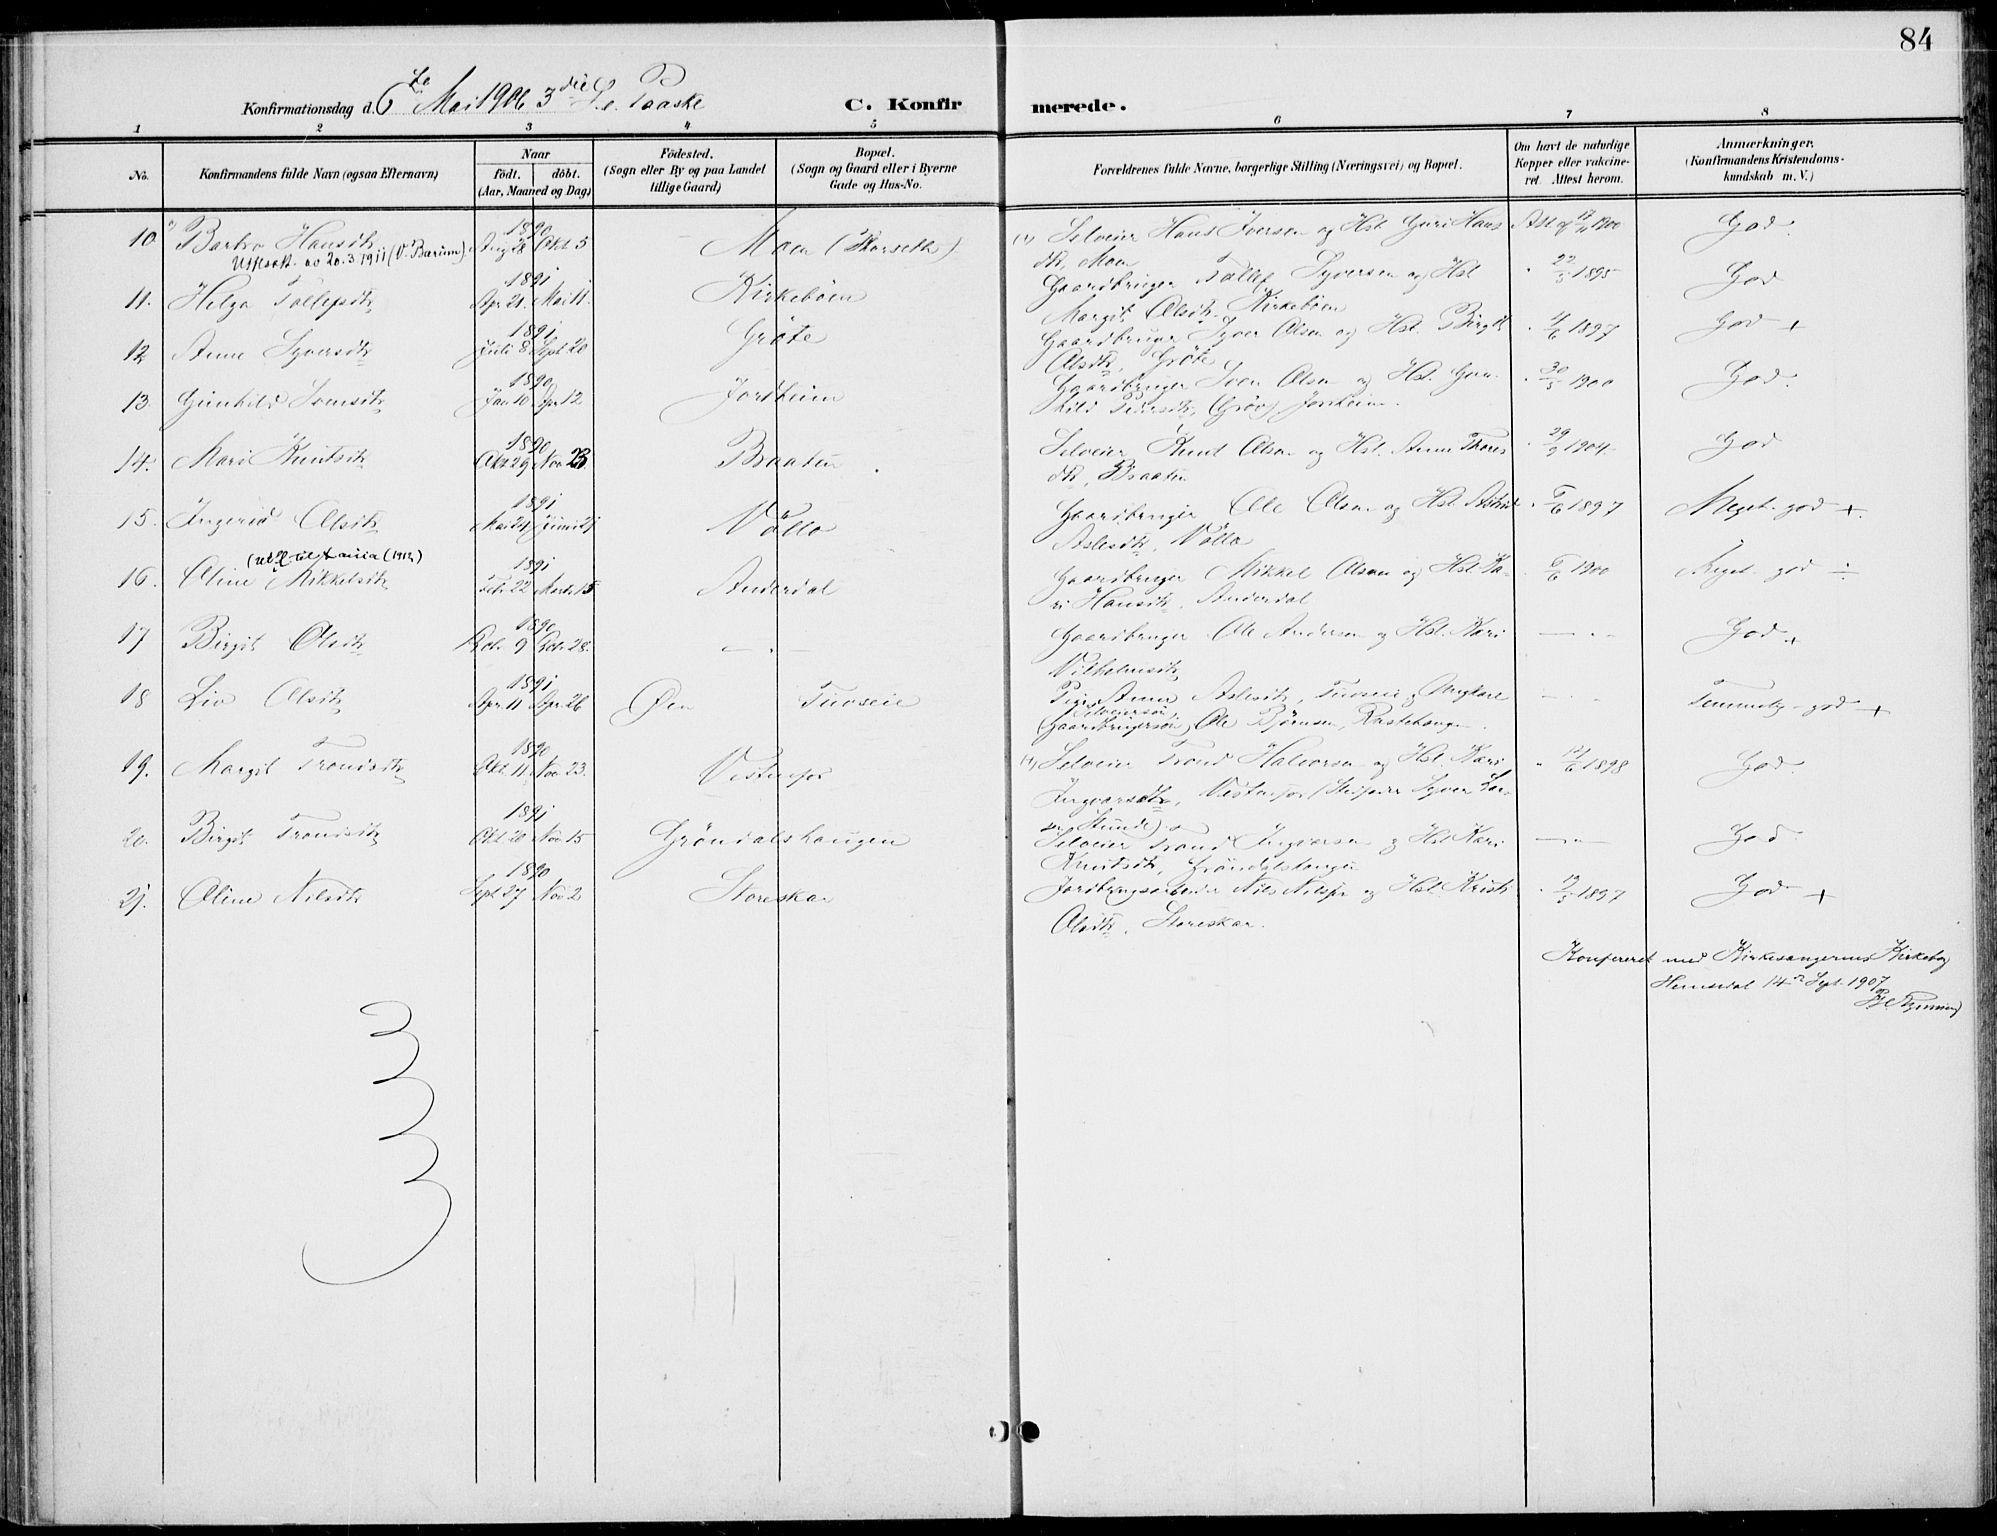 84
Konfirmationsdag d. 6te Mai 1906 3die S. e. Paaske C. Konfirmerede.
1 2 3 4 5 6 7 8
No.
Konfirmandens fulde Navn (ogsaa Efternavn)
Naar
födt. döbt.
(Aar, Maaned og Dag)
Födested.
(Sogn eller By og paa Landet
tillige Gaard)
Bopæl.
(Sogn og Gaard eller i Byerne
Gade og Hus-No.
Forældrenes fulde Navne, borgerlige Stilling (Næringsvei) og Bopæl.
Om havt de naturlige
Kopper eller vaccine-
ret. Attest herom.
Anmærkninger.
(Konfirmandens Kristendoms-
kundskab m. V.)
10 Barbro Hansdtr 1890 Aug 28 Okt 5 Moen (Skarseth) Selveier Hans Iversen og Hst Guri Hans Att af 1900 God.
Uttesatt. av 20.3 1911 (V. Bærum) dtr, Moen
11. Helga Tollefsdtr 1891 Apr. 21. Mai 11. Kirkebøen Gaardbruger Tollef Syversen og Hst 22/3 1895 God
Margit Olsdtr Kirkebøen
12 Anne Syversdtr 1891 Juli 8 Sept 20 Gröte Gaardbruger Syver Olsen og Hst. Birgit 4/6 1897 God +
Olsdtr, Gröte
13. Gunhild Svensdtr 1890 Jan 10 Apr 12 Jordheim Gaardbruger Sven Olsen og Hst. Gun- 30/3 1900 God.
hild (Gröv) Jordheim.
14. Mari Knutsdtr 1890 Okt 29 Nov 23 Braaten Selveier Knut Olsen og Hst. Anne Thores 29/9 1904 God
dtr, Braaten
15. Ingerid Olsdtr 1891 Mai 24 Juni 21 Völlo Gaardbruger Ole Olsen og Hst 1897 Meget god +.
Aslesdtr, Völlo
16. Oline Mikkelsdtr 1891 Feb. 22 Marts 15 Anderdal Gaardbruger Mikkel Olsen og Hst. Ka- 1900 Meget god ÷
(1912) ri Hansdtr, Anderdal
17 Birgit Olsdtr 1890 9 28. — " — Gaardbruger Ole Andersen og Hst. Kari — " — God +
Vilhelmsdtr
18 Liv Olsdtr 1891 Apr. 11 Apr. 26 Øen Tuoseie Pige Anne Aslesdtr, Tuoseie og Ungkarl — " — Temmelig god +
Selveiersøn
Gaardbrugersøn Ole Bjørnsen,
19. Margit Trondsdtr 1890 Okt. 11 Nov. 23. Selveier Trond Halvorsen og Hst Kari 1898 God.
Ingvarsdtr,
20. Birgit Trondsdtr 1891 Okt 20 Nov 15 Gröndalshaugen Selveier Trond Ingvarsen og Hst Kari — " — God.
Knutsdtr, Gröndalshaugen
21. Oline Nilsdtr 1890 Sept 27 Nov 2 Storeskar Nils Nilsen og Hst. Kristi 1897 God +
Olsdtr, Storeskar.
Konfereret med Kirkesangerens Kirkebog
Hemsedal 14de Sept. 1907